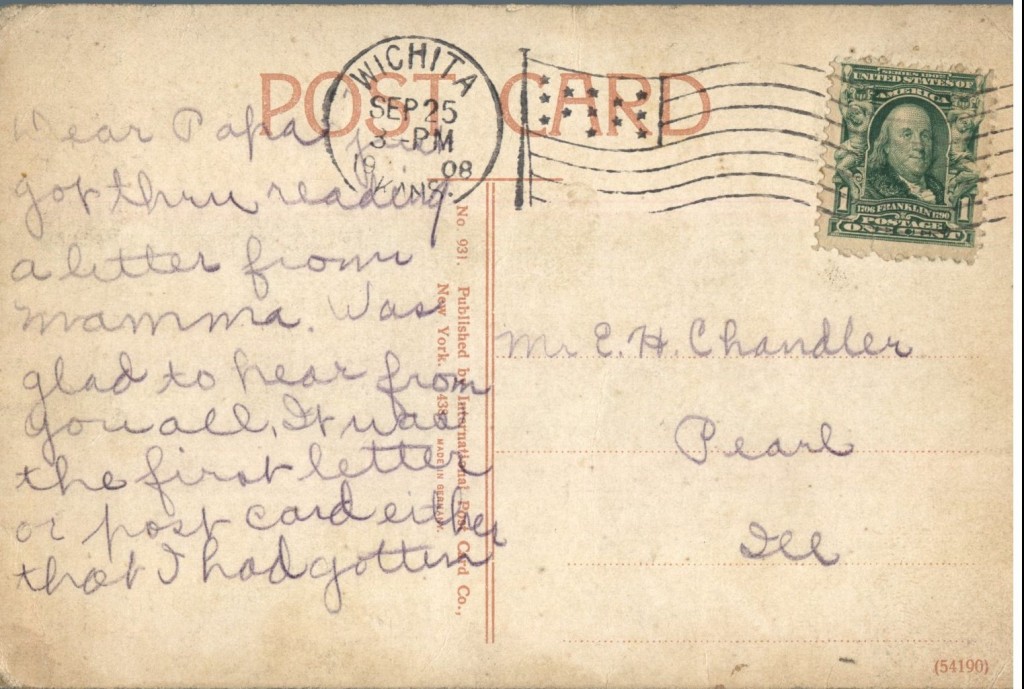 POST CARD
WICHITA
SEP 25
3 - PM
19 08
KANS.
SERIES 1902
UNITED STATES OF
AMERICA
1706 FRANKLIN 1790
POSTAGE
1 1
ONE CENT
Dear Papa
got thru reading
a letter from
mamma. Was
glad to hear from
you all, It was
the first letter
or post card either
that I had gotten
No. 931. Published by International Post Card Co.,
New York. MADE IN GERMANY.
Mr E. H. Chandler
Pearl
Ill
(54190)